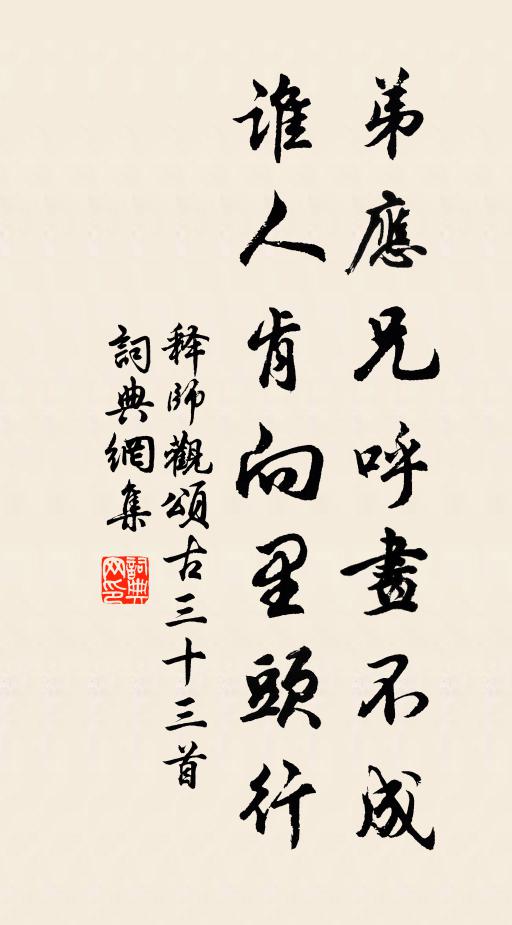 弟應兄呼畫不成
誰人肯向里頭行
释師觀頌古三十三首
詞典網集
詞典
网印